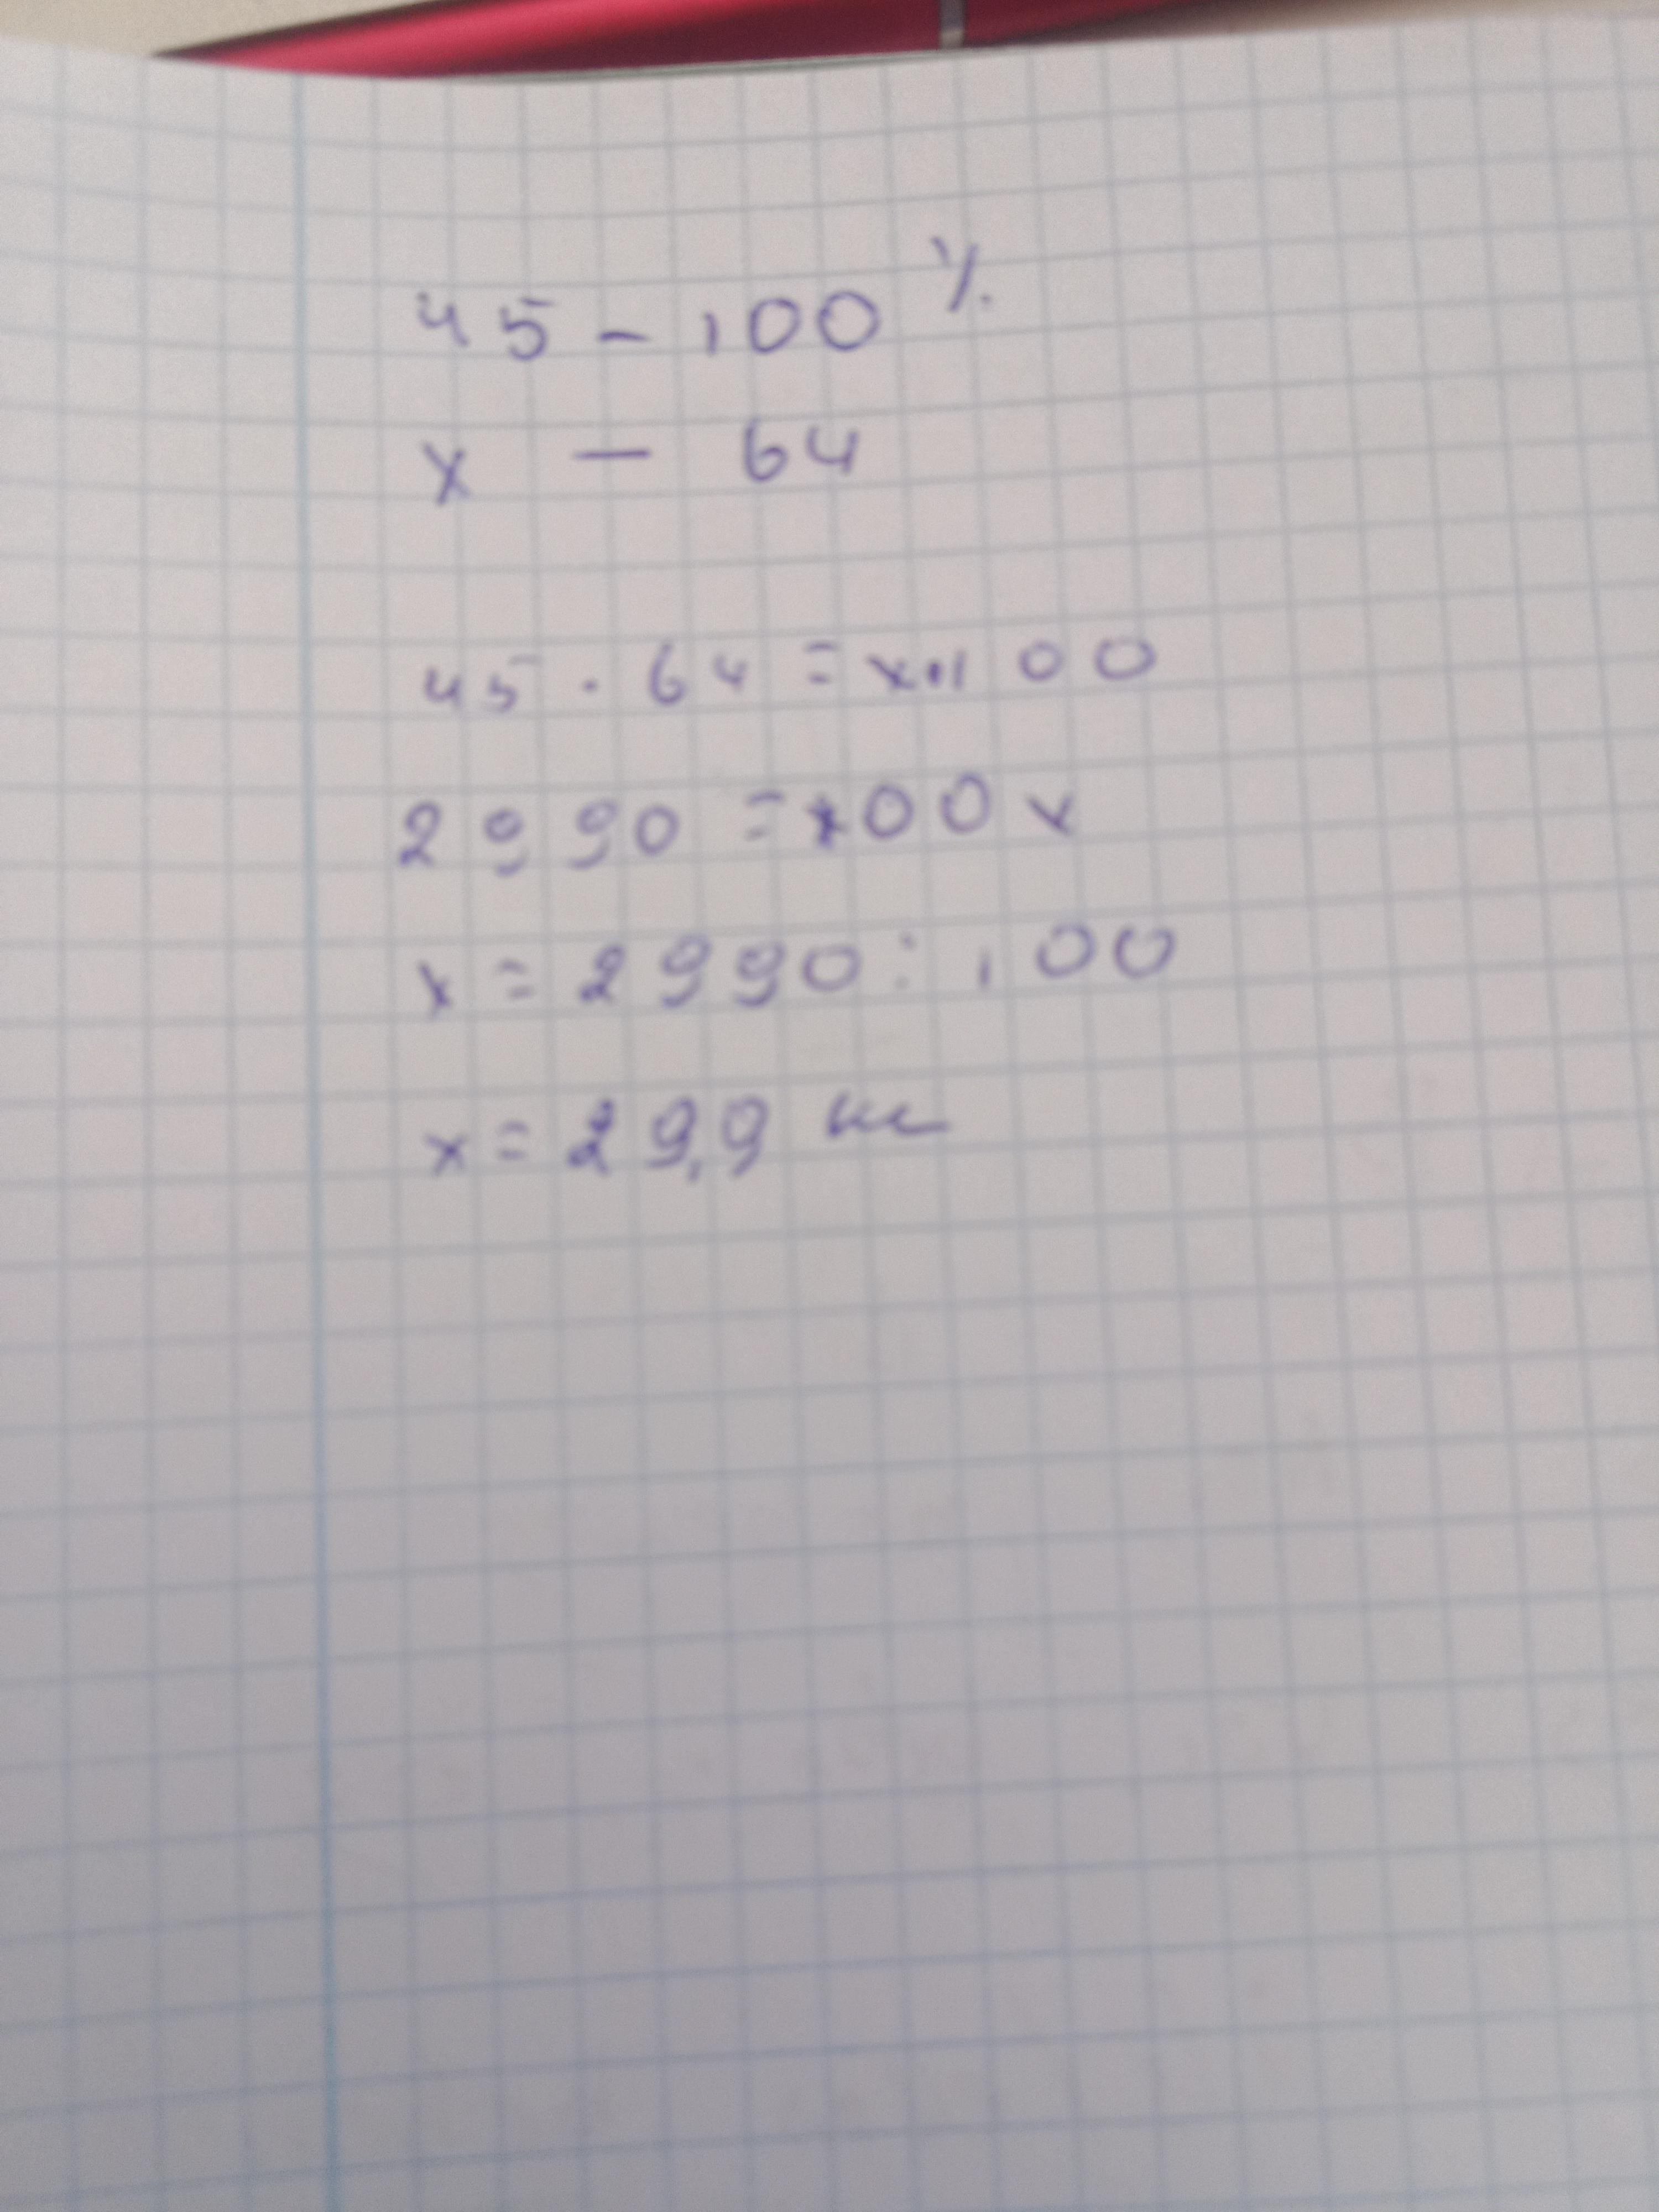 45 – 100 %
x – 64
45 · 64 = x·100
2990 = 100 x
x = 2990 : 100
x = 29,9 кг